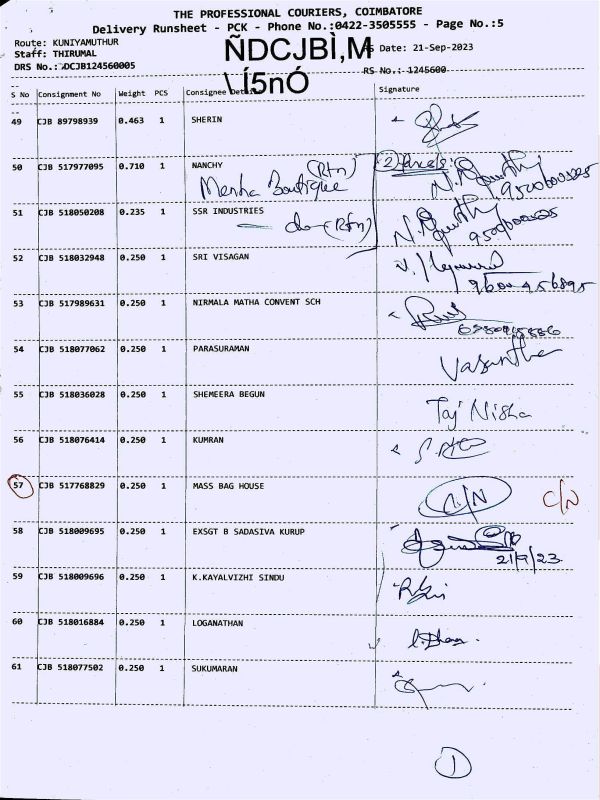 THE PROFESSIONAL COURIERS, COIMBATORE
Delivery Runsheet - PCK - Phone No.:0422-3505555 - Page No.:5
Route: KUNIYAMUTHUR
ÑDCJBÌ,M
RS Date: 21-Sep-2023
Staff: THIRUMAL
DRS No.: DCJB124560005
\Í5nÓ
RS No.: 1245600
S No Consignment No Weight PCS Consignee Details Signature
49 CJB 89798939 0.463 1 SHERIN
50 CJB 517977095 0.710 1 NANCHY (Rtn) 2 Parcels:
Menha Boutique
51 CJB 518050208 0.235 1 SSR INDUSTRIES
do (Rtn)
52 CJB 518032948 0.250 1 SRI VISAGAN
9600456895
53 CJB 517989631 0.250 1 NIRMALA MATHA CONVENT SCH
54 CJB 518077062 0.250 1 PARASURAMAN
Vasantha
55 CJB 518036028 0.250 1 SHEMEERA BEGUN
Taj Nisha
56 CJB 518076414 0.250 1 KUMRAN
57 CJB 517768829 0.250 1 MASS BAG HOUSE C/N C/N
58 CJB 518009695 0.250 1 EXSGT B SADASIVA KURUP
21/9/23
59 CJB 518009696 0.250 1 K.KAYALVIZHI SINDU
60 CJB 518016884 0.250 1 LOGANATHAN
61 CJB 518077502 0.250 1 SUKUMARAN
1